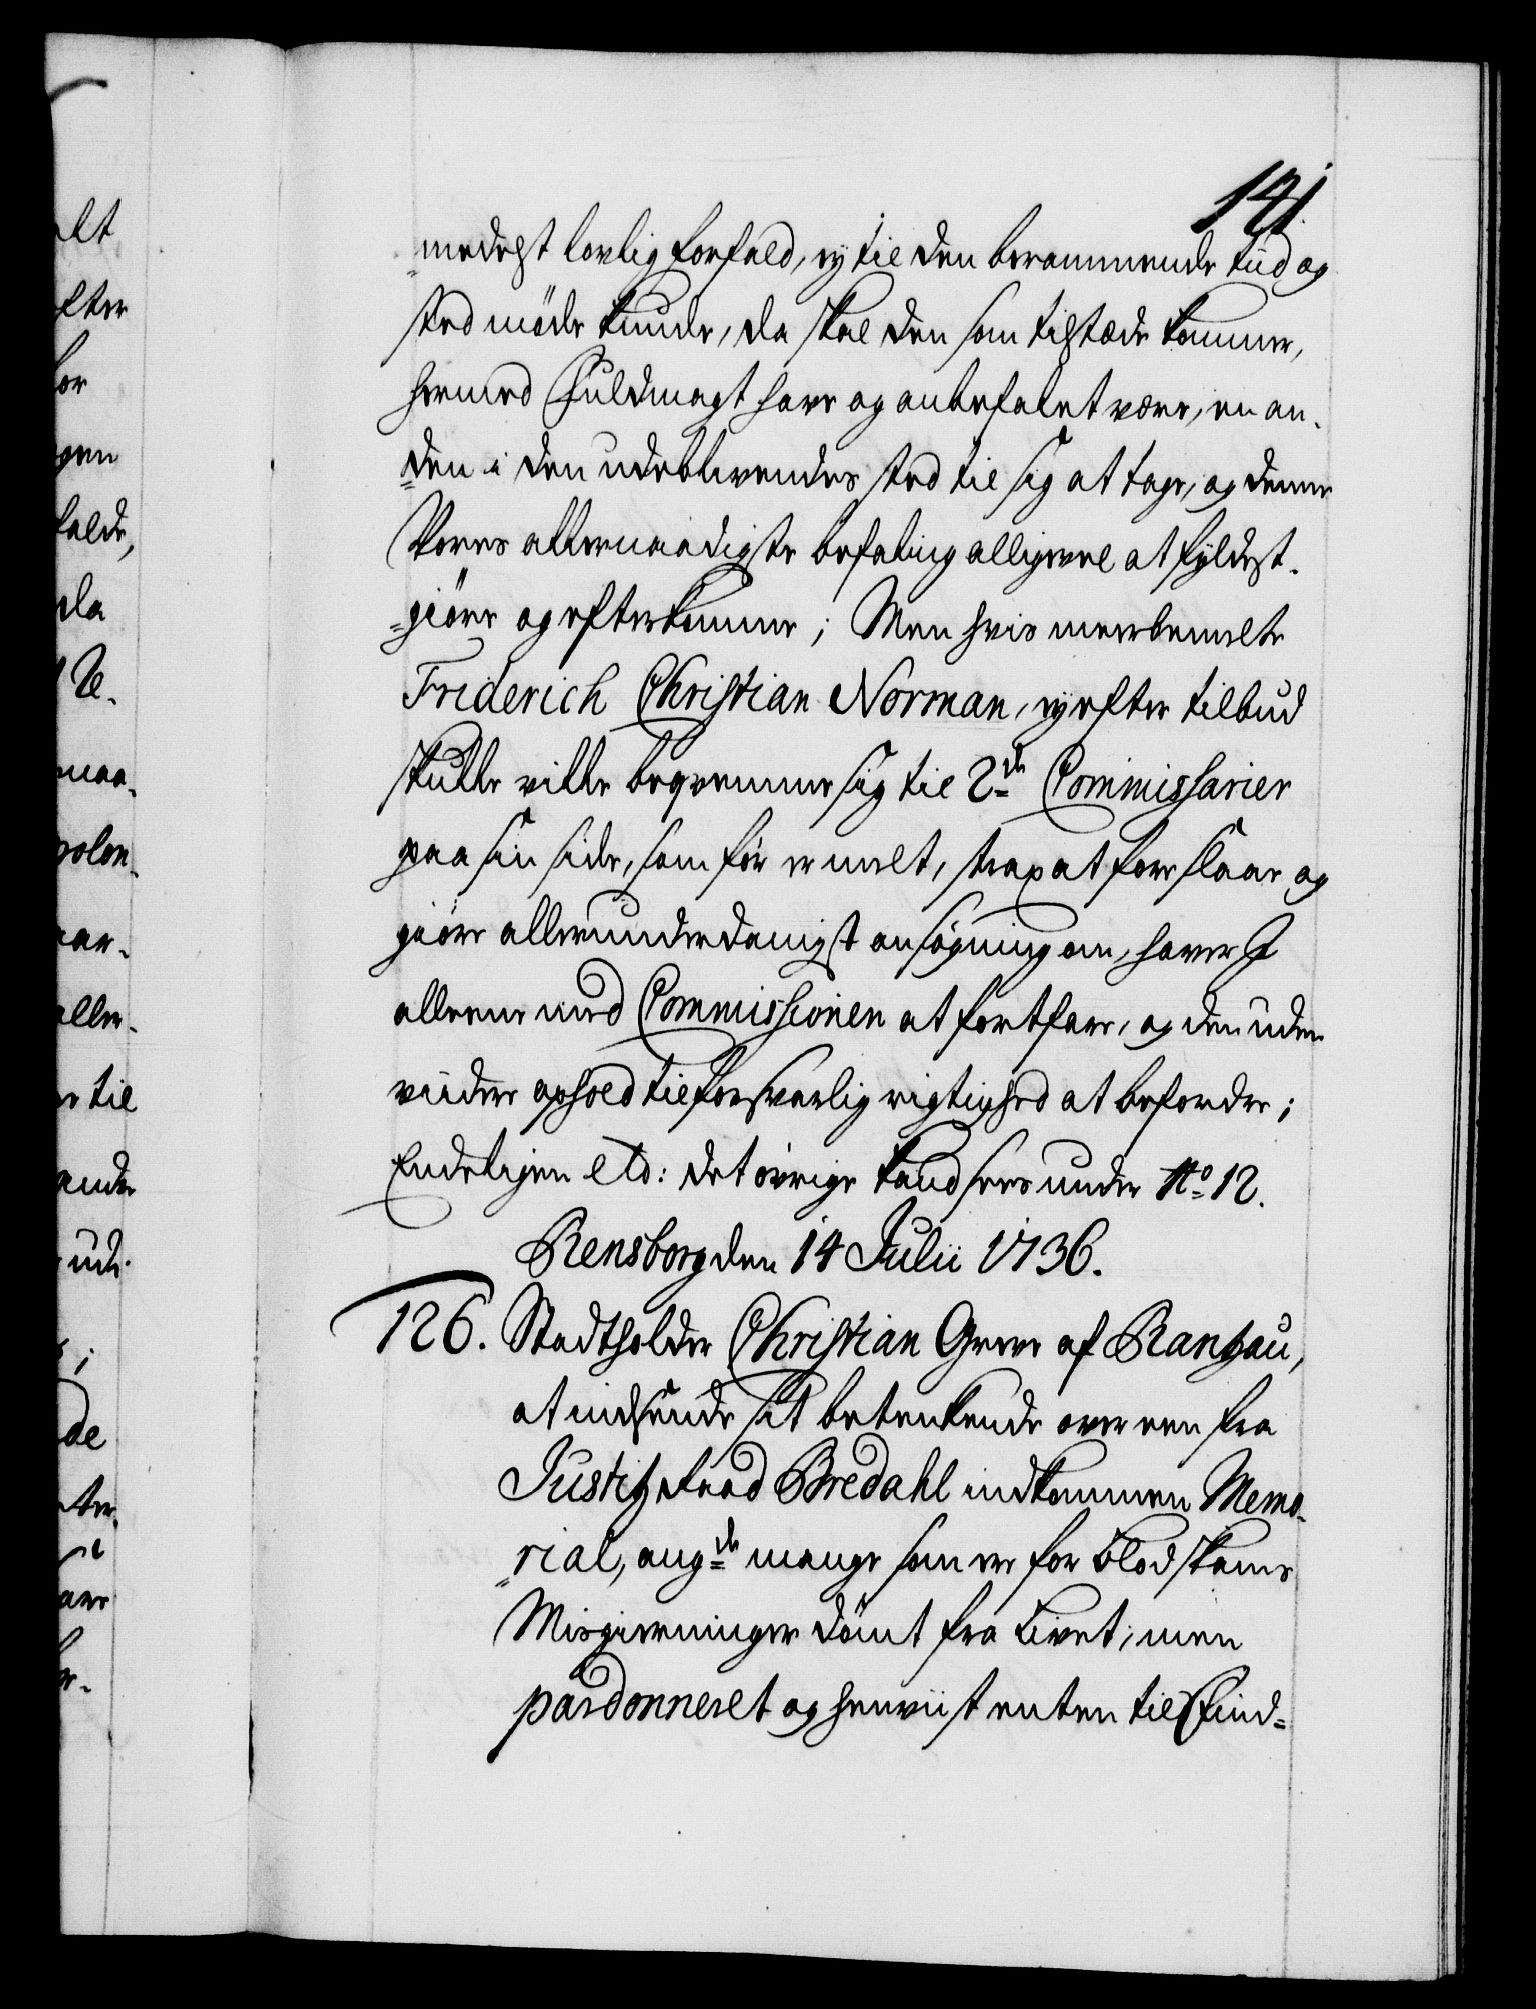 141.
"medelst lovlig forfald, ej til den berammende tiid og
sted möde kunde, da skal den som tilstæde kommer,
hermed Fuldmagt have og anbefalet være, en an-
"den i den udeblivendes sted til sig at tage, og denne
Vores allernaadigste befaling alligevel at fyldest-
"giöre og efterkomme; Men hvis meerbemelte
Friderich Christian Norman, ej efter tilbud
skulle ville beqvemme sig til 2de Commissarier
paa sin side, som för er melt, strax at foreslaae og
giöre allerunderdanigst ansögning om, haver I
alleene med Commissionen at fortfare, og den uden
viidere ophold til forsvarlig rigtighed at befordre;
Endeligen etc: det övrige kand sees under No 12.
Rensborg den 14 Julii 1736.
126. Stadtholder Christian Greve af Rantzau,
at indsende sit betenkende over een fra
Justitz Raad Bredahl indkommen Memo-
"rial, angde mange som ere for Blodskams
Misgierninger dömt fra Livet, men
pardonneret og henviist enten til Find=
alt
efter
for
gen
falde,
da
naa-
polon-
aar-
aller-
til
ande
ud-
de